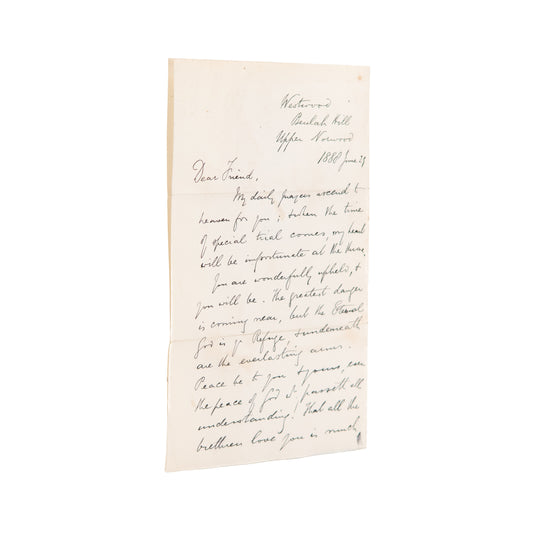 Westwood
Beulah Hill
Upper Norwood
1888 June 29
Dear Friend,
My daily prayers ascend to
heaven for you; & when the time
of special trial comes, my heart
will be importunate at the throne.
You are wonderfully upheld, &
you will be. The greatest danger
is coming near, but the Eternal
God is yr Refuge, & underneath
are the everlasting arms.
Peace be to you & yours, even
the peace of God wh passeth all
understanding! That all the
brethren love you is much